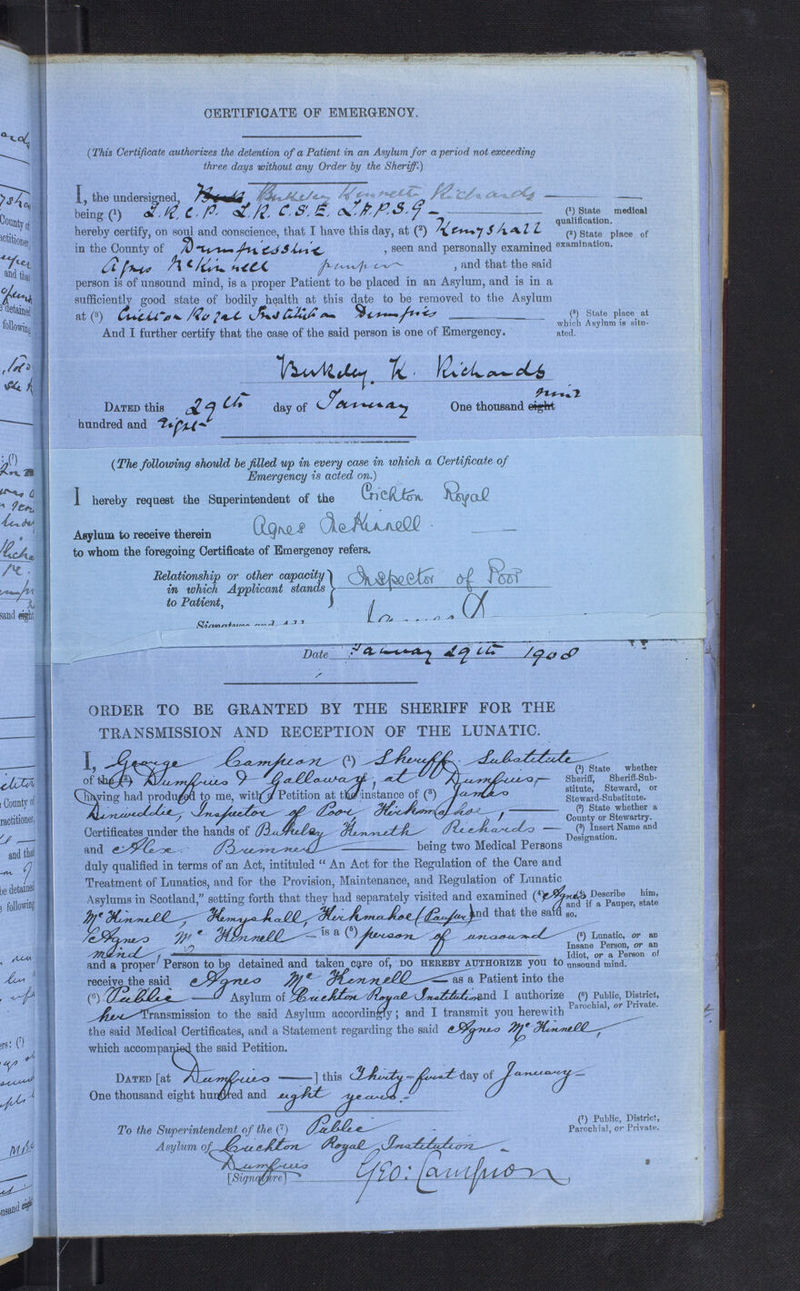 CERTIFICATE OF EMERGENCY.
(This Certificate authorizes the detention of a Patient in an Asylum for a period not exceeding
three days without any Order by the Sheriff.)
I, the undersigned, Berkeley Kenneth Richards
being (1) L.R.C.P. L.R.C.S.E. L.F.P.S.G
(1) State medical
qualification.
hereby certify, on soul and conscience, that I have this day, at (2) Hemyshall
(2) State place of
examination.
in the County of Dumfriesshire, seen and personally examined
Agnes McKinnell pauper, and that the said
person is of unsound mind, is a proper Patient to be placed in an Asylum, and is in a
sufficiently good state of bodily health at this date to be removed to the Asylum
at (3) Crichton Royal Institution Dumfries
(3) State place at
which Asylum is situ-
ated.
And I further certify that the case of the said person is one of Emergency.
Berkeley. K. Richards
DATED this 29th day of January One thousand eight nine
hundred and eight
(The following should be filled up in every case in which a Certificate of
Emergency is acted on.)
I hereby request the Superintendent of the Crichton Royal
Asylum to receive therein Agnes McKinnell
to whom the foregoing Certificate of Emergency refers.
Relationship or other capacity
in which Applicant stands
to Patient,
Inspector of Poor
Date January 29th 1908
ORDER TO BE GRANTED BY THE SHERIFF FOR THE
TRANSMISSION AND RECEPTION OF THE LUNATIC.
I, George Campion (1) Sheriff Substitute
of the (2) Dumfries & Galloway, at Dumfries
(1) State whether
Sheriff, Sheriff-Sub-
stitute, Steward, or
Steward-Substitute.
having had produced to me, with a Petition at the instance of (3) James
Dinwiddie, Inspector of Poor, Kirkmahoe,
(2) State whether a
County or Stewartry.
Certificates under the hands of Berkeley Kenneth Richards
(3) Insert Name and
Designation.
and Alex. Bremner being two Medical Persons
duly qualified in terms of an Act, intituled "An Act for the Regulation of the Care and
Treatment of Lunatics, and for the Provision, Maintenance, and Regulation of Lunatic
Asylums in Scotland," setting forth that they had separately visited and examined (4) Agnes
Describe him,
and if a Pauper, state
so.
McKinnell, Hemyshall, Kirkmahoe (Pauper) and that the said
Agnes McKinnell is a (5) person of unsound
mind,
(5) Lunatic, or an
Insane Person, or an
Idiot, or a Person of
unsound mind.
and a proper Person to be detained and taken care of, DO HEREBY AUTHORIZE you to
receive the said Agnes McKinnell as a Patient into the
(6) Public Asylum of Crichton Royal Institution and I authorize
(6) Public, District,
Parochial, or Private.
her Transmission to the said Asylum accordingly; and I transmit you herewith
the said Medical Certificates, and a Statement regarding the said Agnes McKinnell,
which accompanied the said Petition.
DATED [at Dumfries ] this Thirty-first day of January
One thousand eight hundred and eight years.
To the Superintendent of the (7) Public
(7) Public, District,
Parochial, or Private.
Asylum of Crichton Royal Institution
Dumfries
[Signature] Geo: Campion